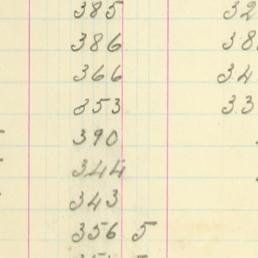 385 32
386 38
366 34
353 33
390
344
343
356 5